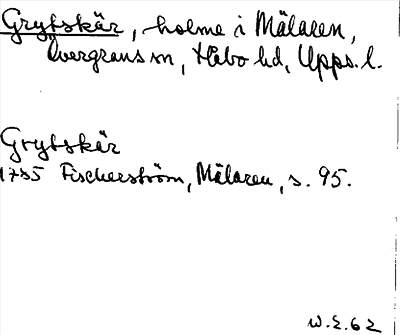 Grytskär, holme i Mälaren,
Övergrans sn, Håbo hd, Upps. l.
Grytskär
1785 Fischerström, Mälaren, s. 95.
W.E. 62